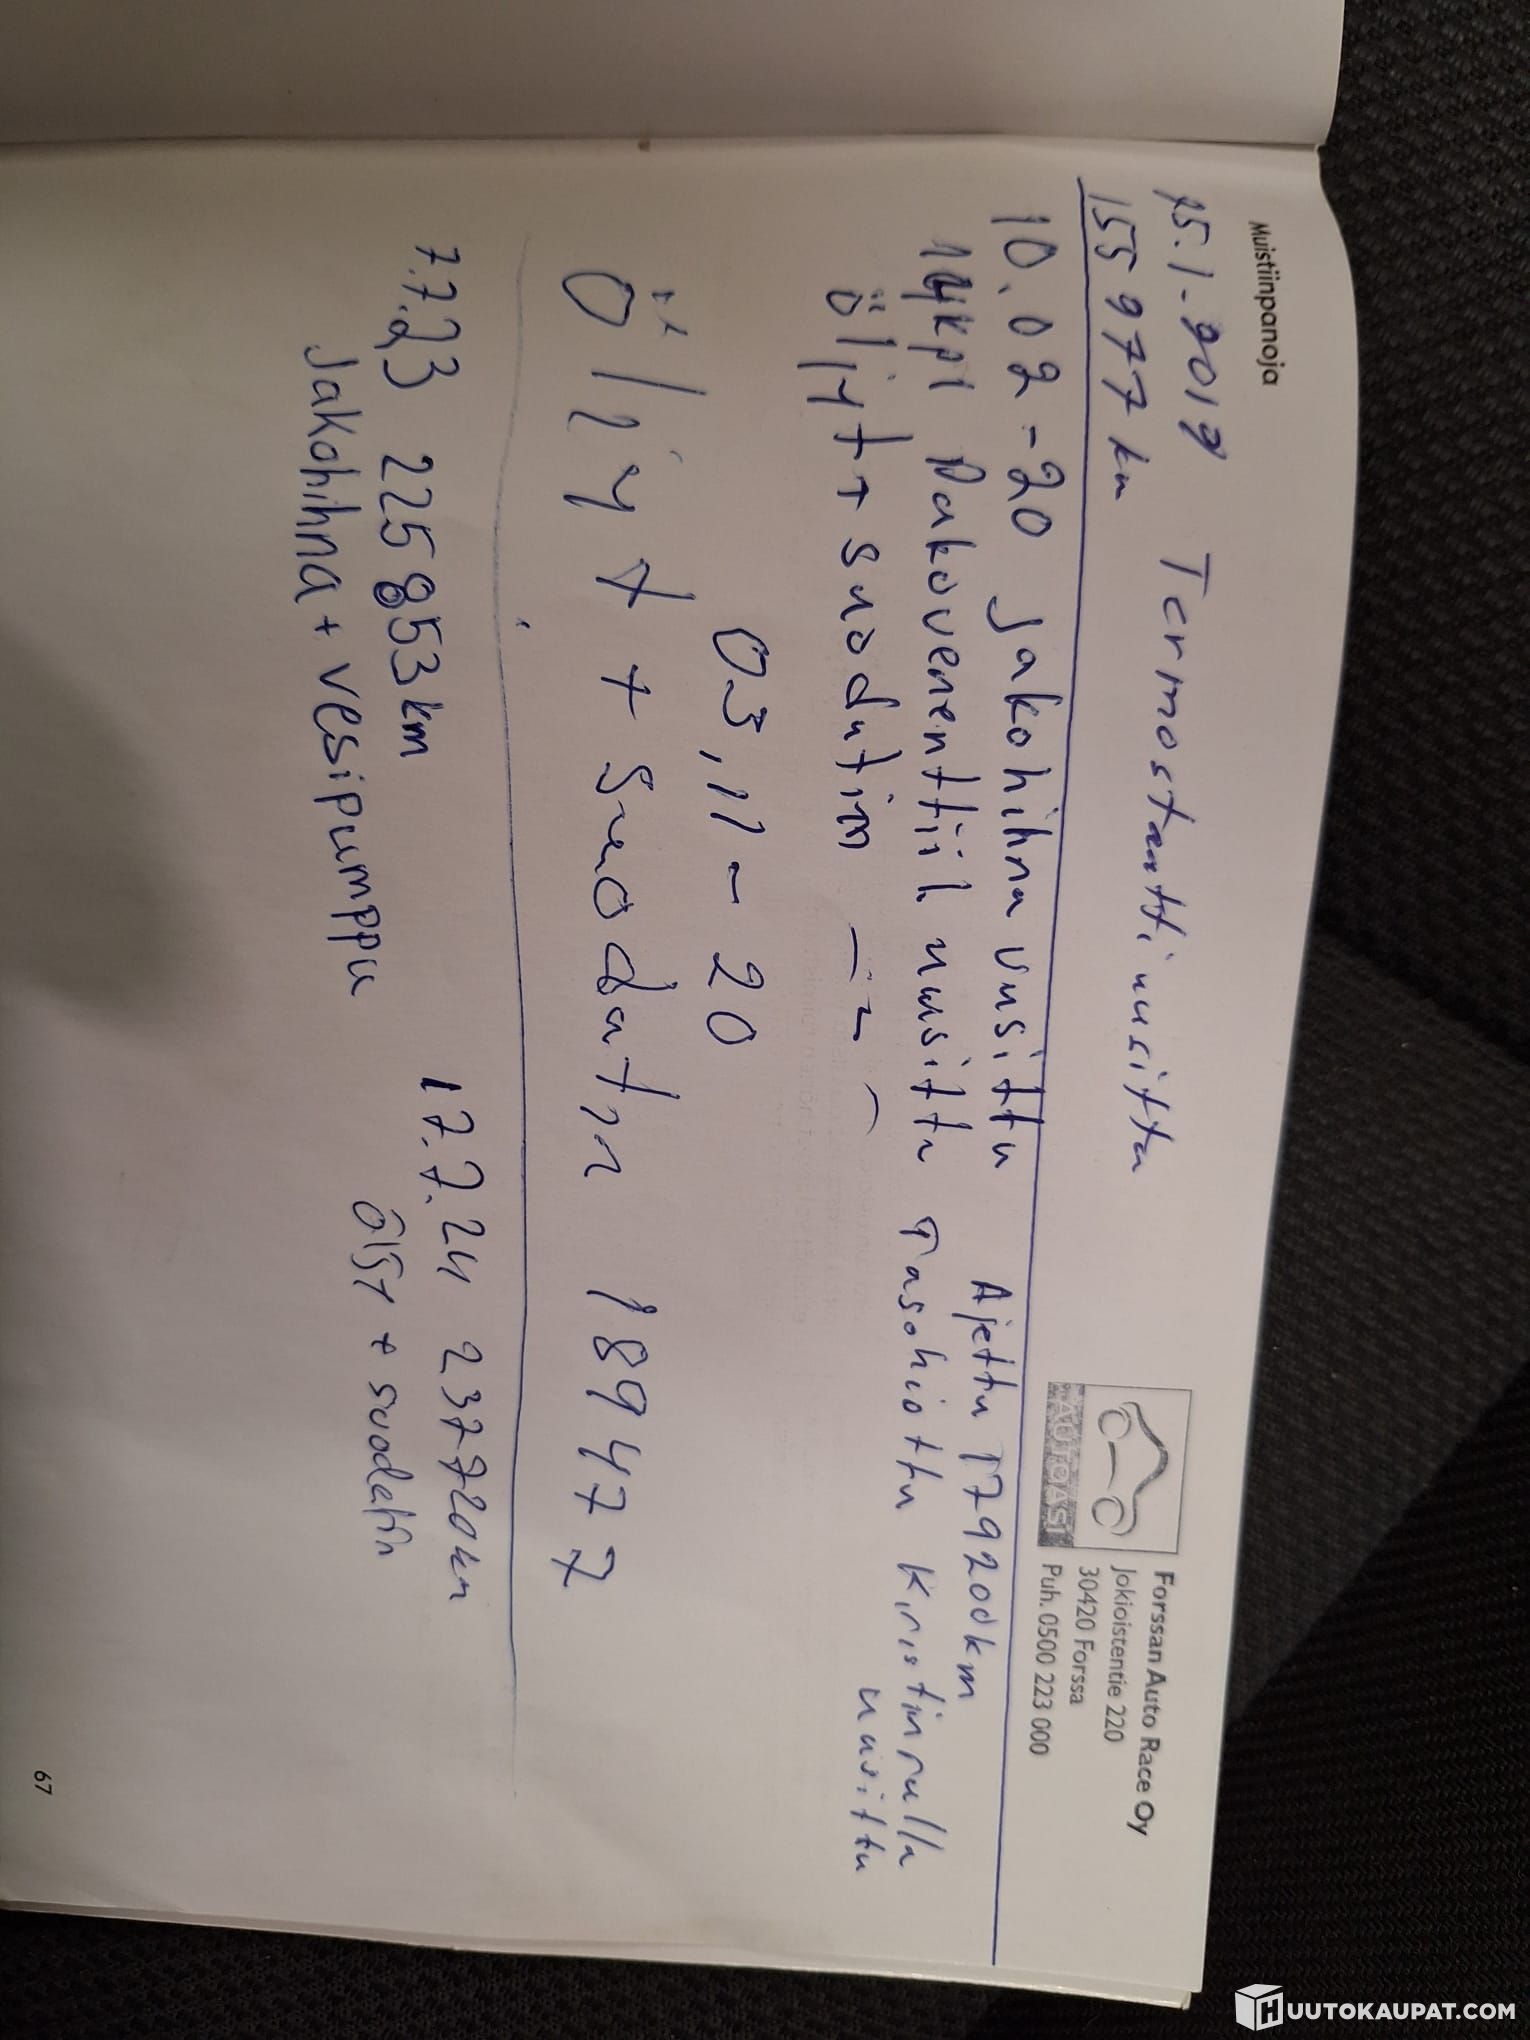 Muistiinpanoja
Forssan Auto Race Oy
Jokioistentie 220
30420 Forssa
Puh. 0500 223 000
AUTOASI
25.1-2019 Termostaatti uusittu
155 977 km
10.02-20 Jakohihna uusittu Ajettu 179200km
14kpl Pakoventtiili uusittu Tasohiottu Kiristinrulla
uusittu
öljyt + suodatin
03,11-20
Öljyt + Suodatin 189477
7.7.23 225853km
Jakohihna + vesipumppu
17.7.24 237720km
Öljyt + suodatin
67
HUUTOKAUPAT.COM